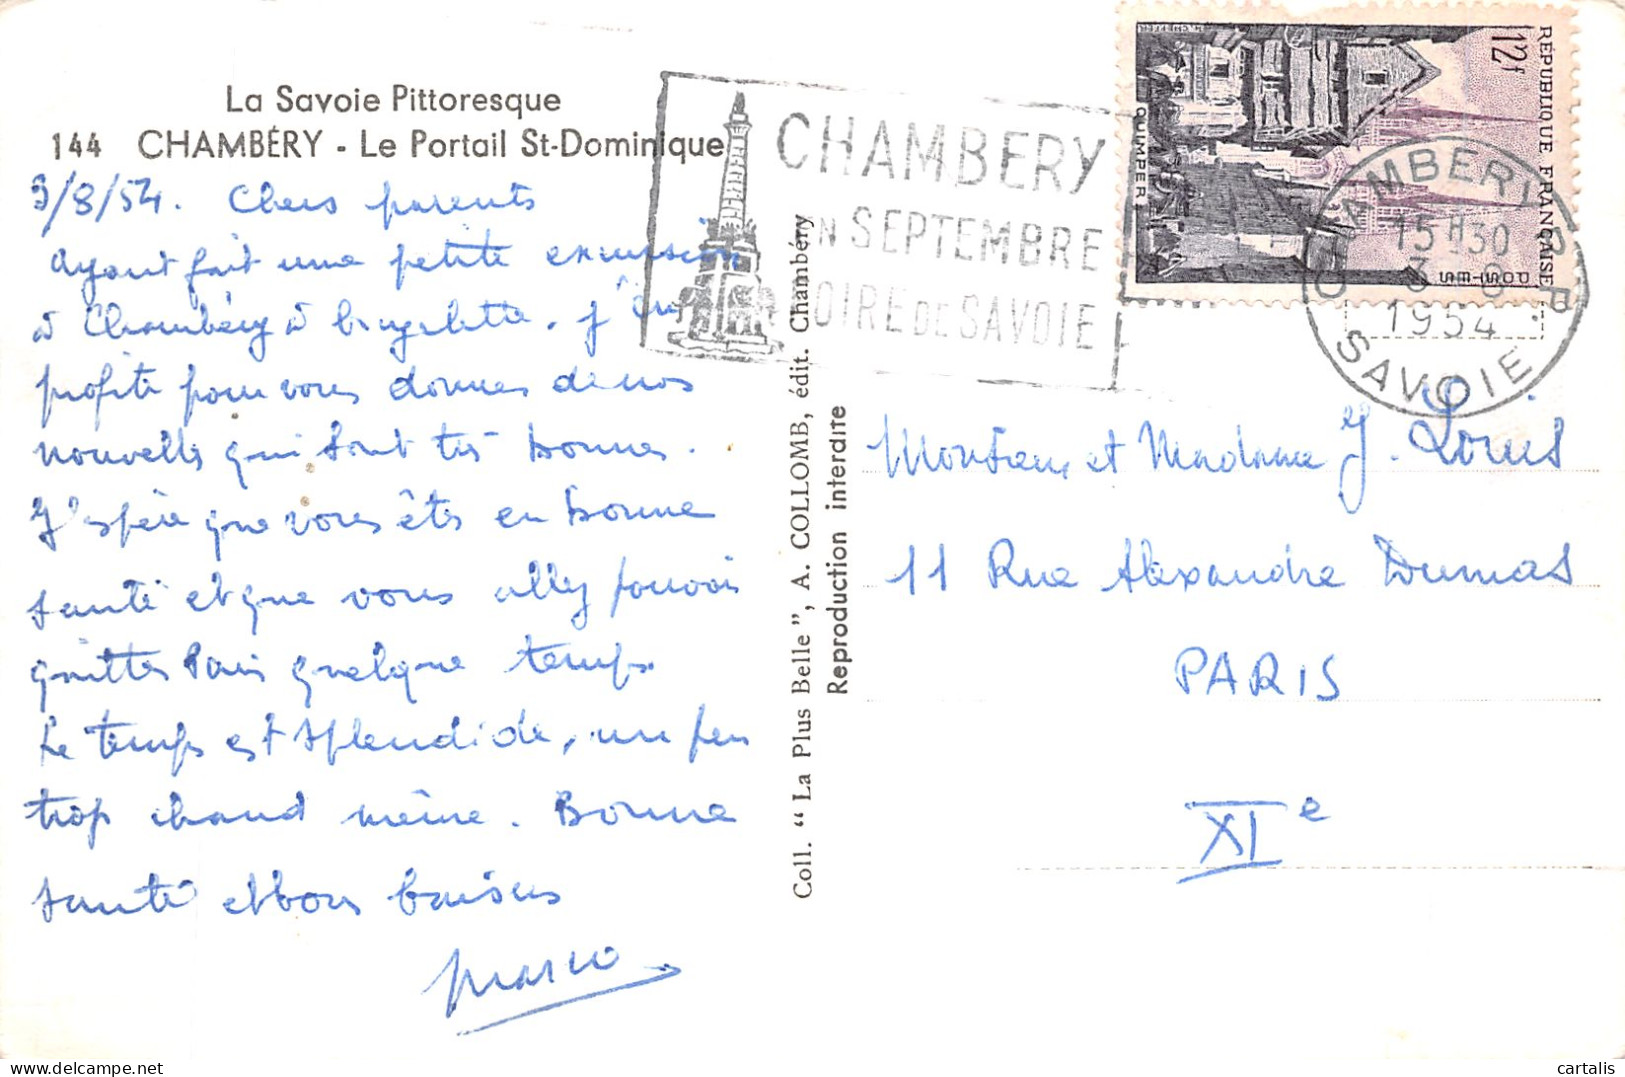 La Savoie Pittoresque
144 CHAMBÉRY - Le Portail St-Dominique
3/8/54. Chers parents
Ayant fait une petite excursion
à Chambéry à bicyclette. j'en
profite pour vous donner de nos
nouvelles qui sont très bonnes.
J'espère que vous êtes en bonne
santé et que vous allez pouvoir
quitter Paris quelque temps.
Le temps est splendide, un peu
trop chaud même. Bonne
santé et bons baisers
Coll. “ La Plus Belle ”, A. COLLOMB, édit. Chambéry
Reproduction interdite
CHAMBERY
EN SEPTEMBRE
FOIRE DE SAVOIE
12f
RÉPUBLIQUE FRANÇAISE
QUIMPER
POSTES
CHAMBERY R.P
15H30
3 - 8
1954
SAVOIE
Monsieur et Madame J. Louis
11 Rue Alexandre Dumas
PARIS
XIe
cartalis
www.delcampe.net